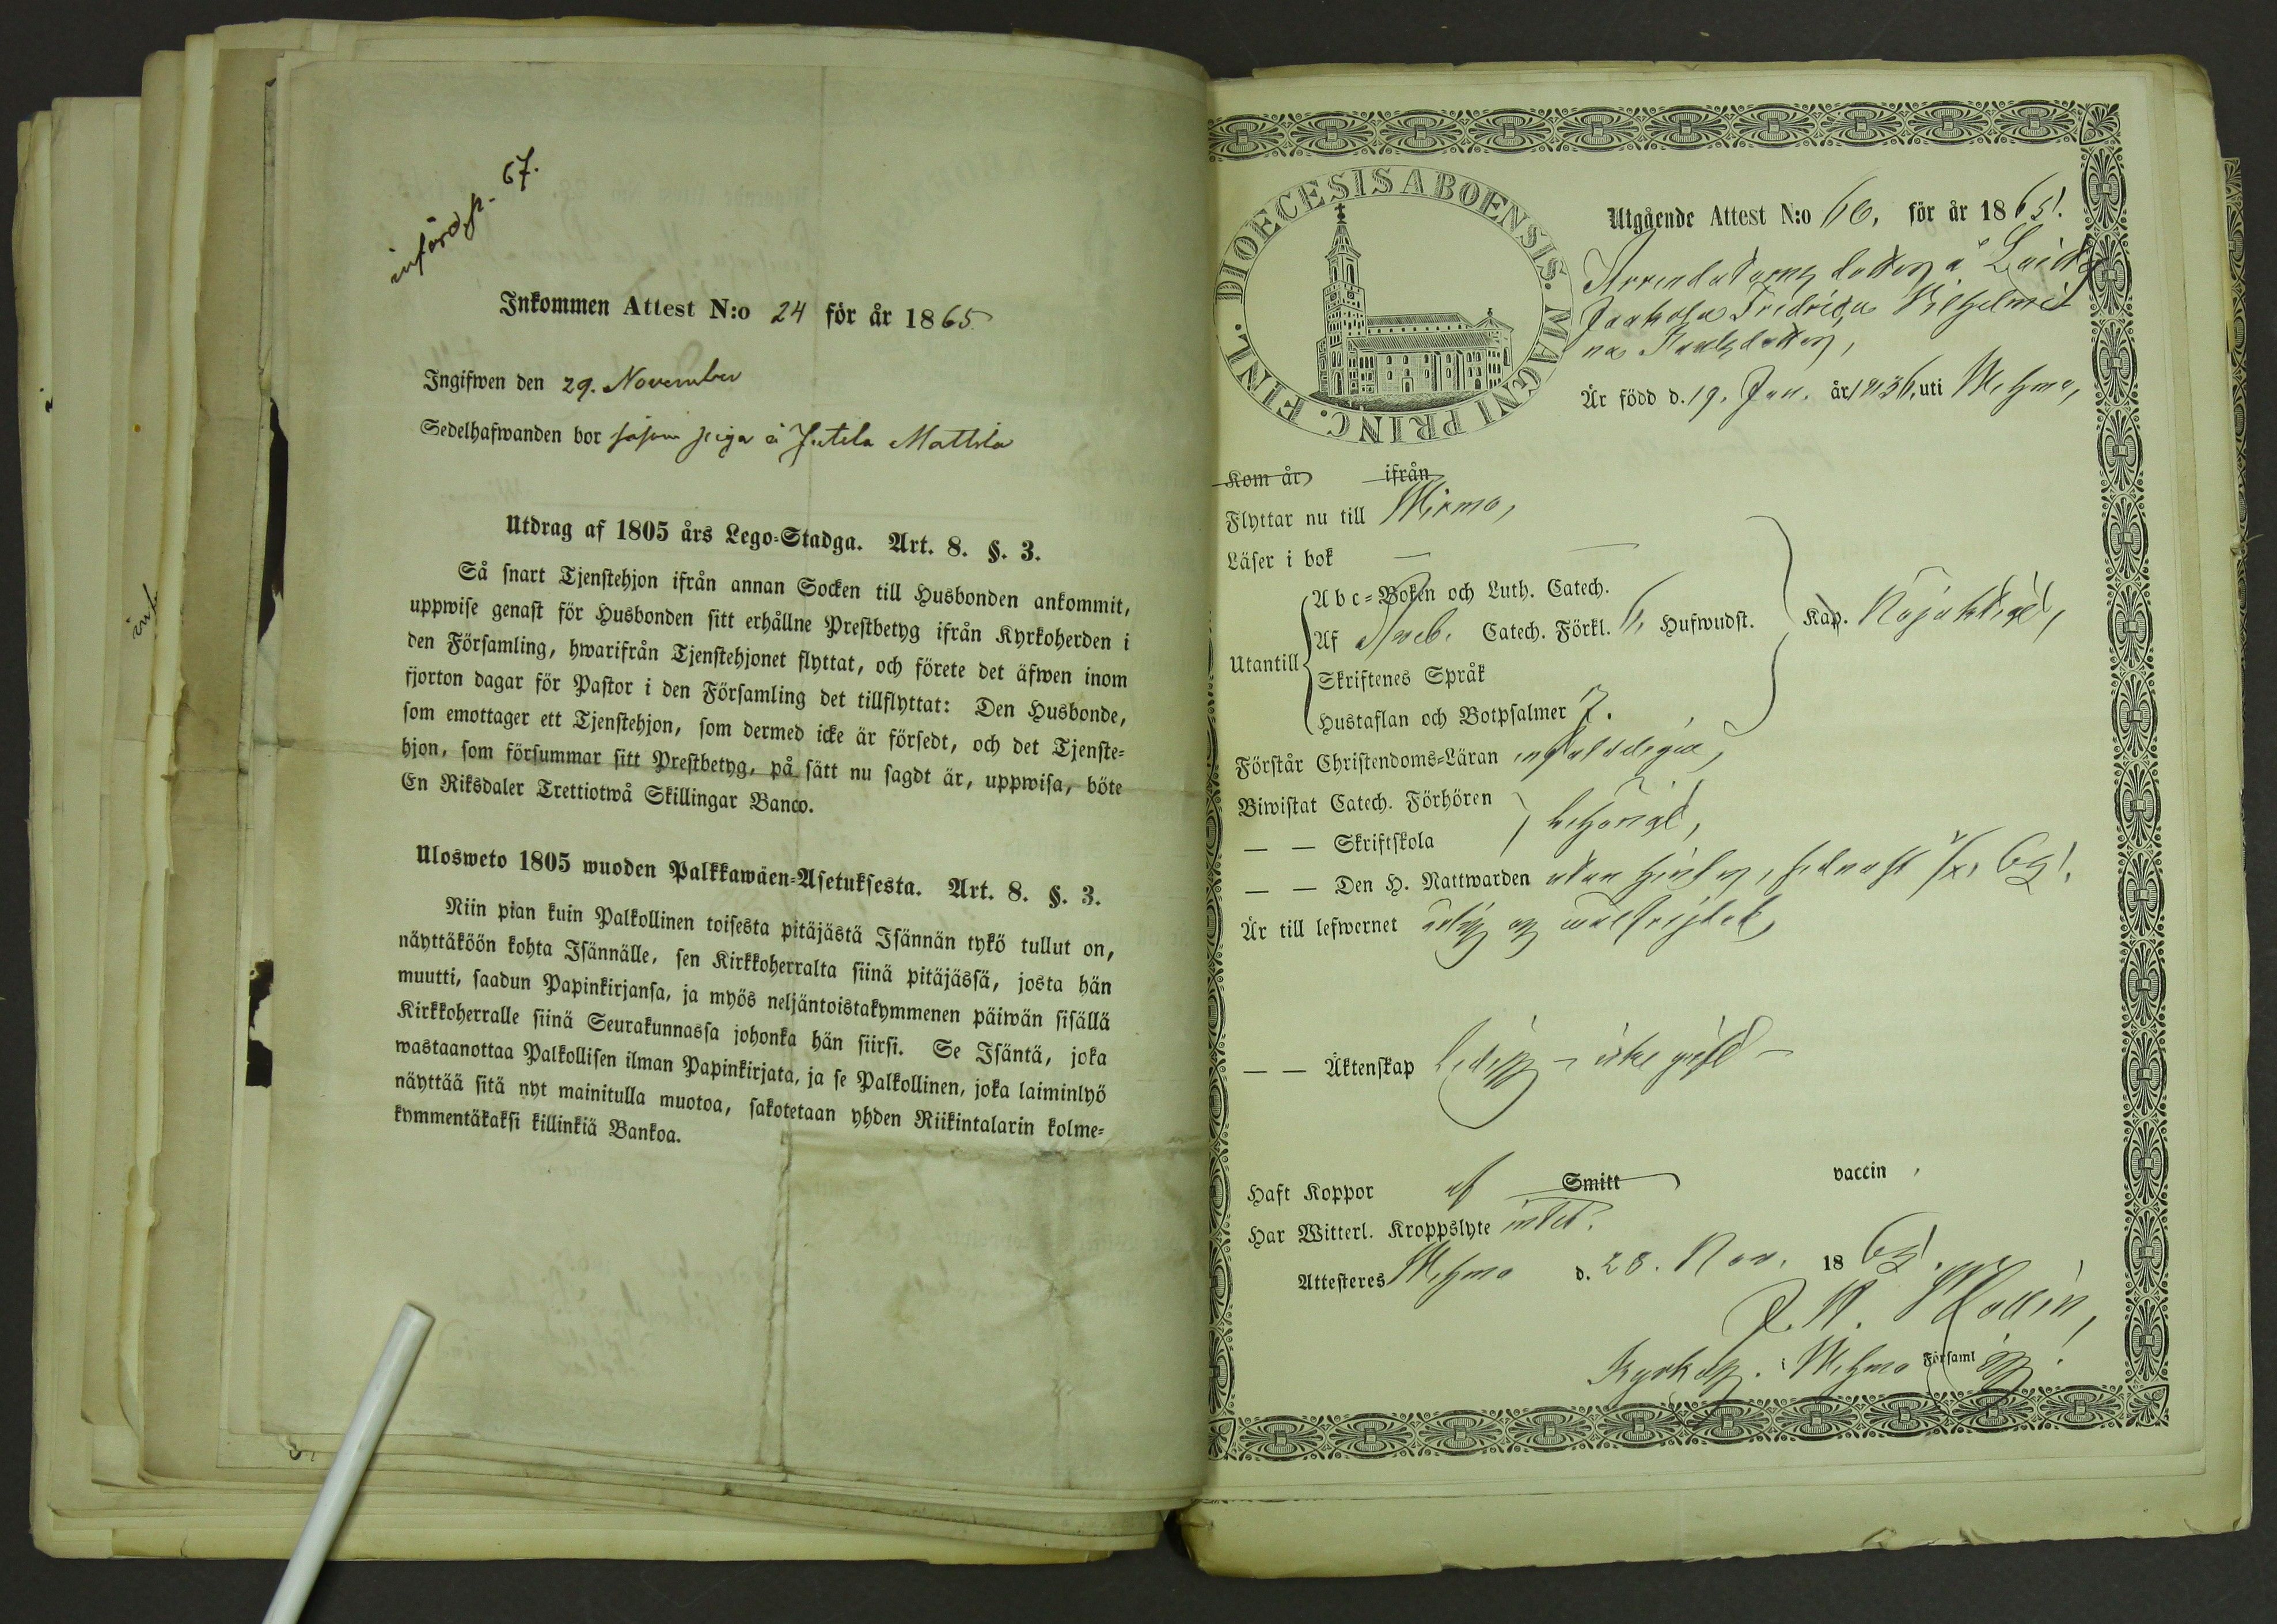 införd p. 67.
Inkommen Attest N:o 24 för år 1865
Ingifwen den 29. November
Sedelhafwanden bor såsom piga å Jutela Mattila
Utdrag af 1805 års Lego-Stadga. Art. 8. §. 3.
Så snart Tjenstehjon ifrån annan Socken till Husbonden ankommit,
uppwise genast för Husbonden sitt erhållne Prestbetyg ifrån Kyrkoherden i
den Församling, hwarifrån Tjenstehjonet flyttat, och förete det äfwen inom
fjorton dagar för Pastor i den Församling det tillflyttat: Den Husbonde,
som emottager ett Tjenstehjon, som dermed icke är försedt, och det Tjenste-
hjon, som försummar sitt Prestbetyg, på sätt nu sagdt är, uppwisa, böte
En Riksdaler Trettiotwå Skillingar Banco.
Ulosweto 1805 wuoden Palkkawäen-Asetuksesta. Art. 8. §. 3.
Niin pian kuin Palkollinen toisesta pitäjästä Isännän tykö tullut on,
näyttäköön kohta Isännälle, sen Kirkkoherralta siinä pitäjässä, josta hän
muutti, saadun Papinkirjansa, ja myös neljäntoistakymmenen päiwän sisällä
Kirkkoherralle siinä Seurakunnassa johonka hän siirsi. Se Isäntä, joka
wastaanottaa Palkollisen ilman Papinkirjata, ja se Palkollinen, joka laiminlyö
näyttää sitä nyt mainitulla muotoa, sakotetaan yhden Riikintalarin kolme-
kymmentäkaksi killinkiä Bankoa.
FINL. DIOECESIS ABOENSIS. MAGNI PRINC.
Utgående Attest N:o 66, för år 1865.
Arrendators dotter å
Jaakola Fredrica Wilhelmi
na Karlsdotter,
Är född d. 19. Jan. år 1836, uti Wehmo,
Kom år ifrån
Flyttar nu till Wirmo,
Läser i bok —
Utantill
Abc-Boken och Luth. Catech.
Af Sveb. Catech. Förkl. 6, Hufwudst. Kap. Nöjaktigt,
Skriftenes Språk
Hustaflan och Botpsalmer 7.
Förstår Christendoms-Läran
Biwistat Catech. Förhören
— — Skriftskola behörigt,
— — Den H. Nattwarden utan hinder, sednast 65.
Är till lefwernet ärlig og wälfrejdad,
— — Äktenskap ledig — icke gift —
Haft Koppor af Smitt vaccin,
Har Witterl. Kroppslyte intet.
Attesteres Wehmo d. 28. Nov. 1865.
Kyrkoh. i Wehmo Församl